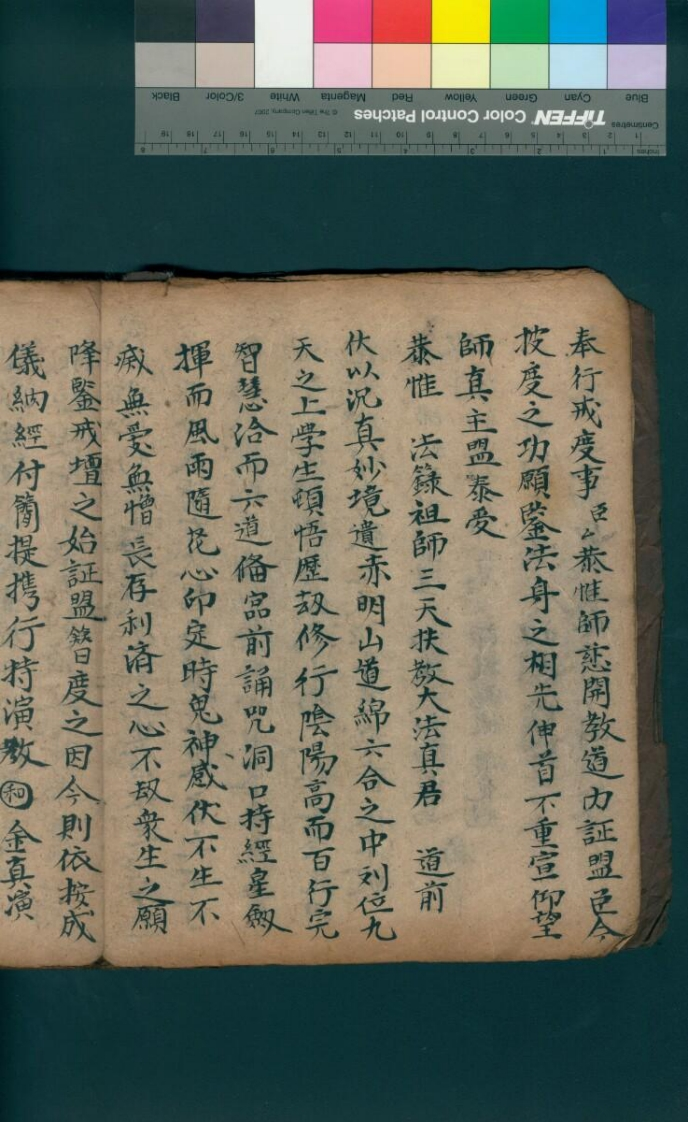 奉行戒度事臣厶恭惟師慈開教道内証盟臣今
披度之功願鑒法身之相先伸首不重宣仰望
師真主盟泰爱
恭惟 法籙祖師三天扶教大法真君 道前
伏以況真妙境遺赤明山道綿六合之中列位九
天之上學生頓悟歴劫修行陰陽高而百行完
智慧洽而六道俻宻前誦咒洞口持經星劔
揮而風雨隨花心印定時鬼神感伏不生不
滅無愛無憎長存利済之心不
衆生之願
降鑒戒壇之始証盟簪日度之因今則依按成
儀納經付簡提携行持演教和金真演
Blue Cyan Green Yellow Red Magenta White 3/Color Black
TIFFEN Color Control Patches © The Tiffen Company, 2007
Centimetres 1 2 3 4 5 6 7 8 9 10 11 12 13 14 15 16 17 18 19
Inches 1 2 3 4 5 6 7 8